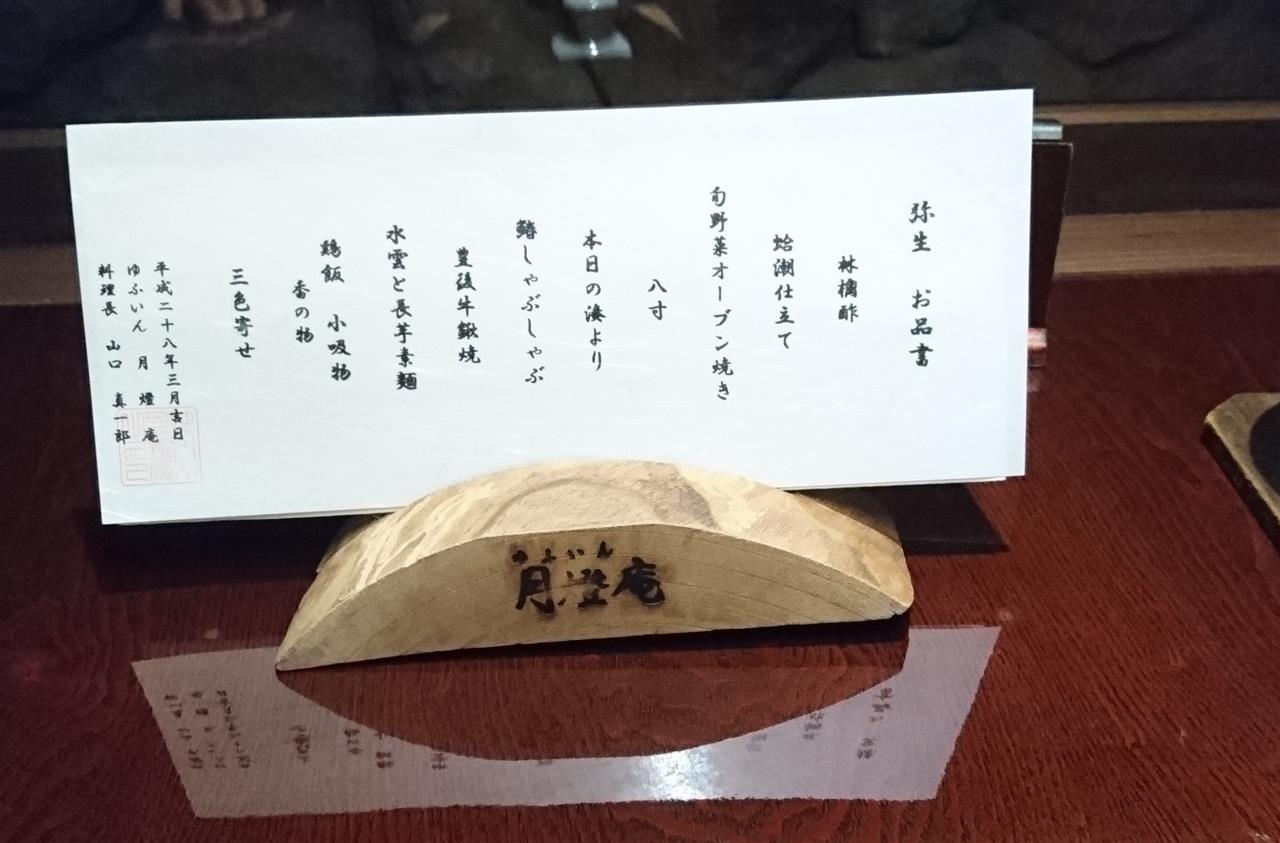 弥生 お品書
林檎酢
蛤潮仕立て
旬野菜オーブン焼き
八寸
本日の湊より
鰆しゃぶしゃぶ
豊後牛鍬焼
水雲と長芋素麺
鶏飯 小吸物
香の物
三色寄せ
平成二十八年三月吉日
ゆふいん 月燈庵
料理長 山口 真一郎
ゆふいん
月燈庵